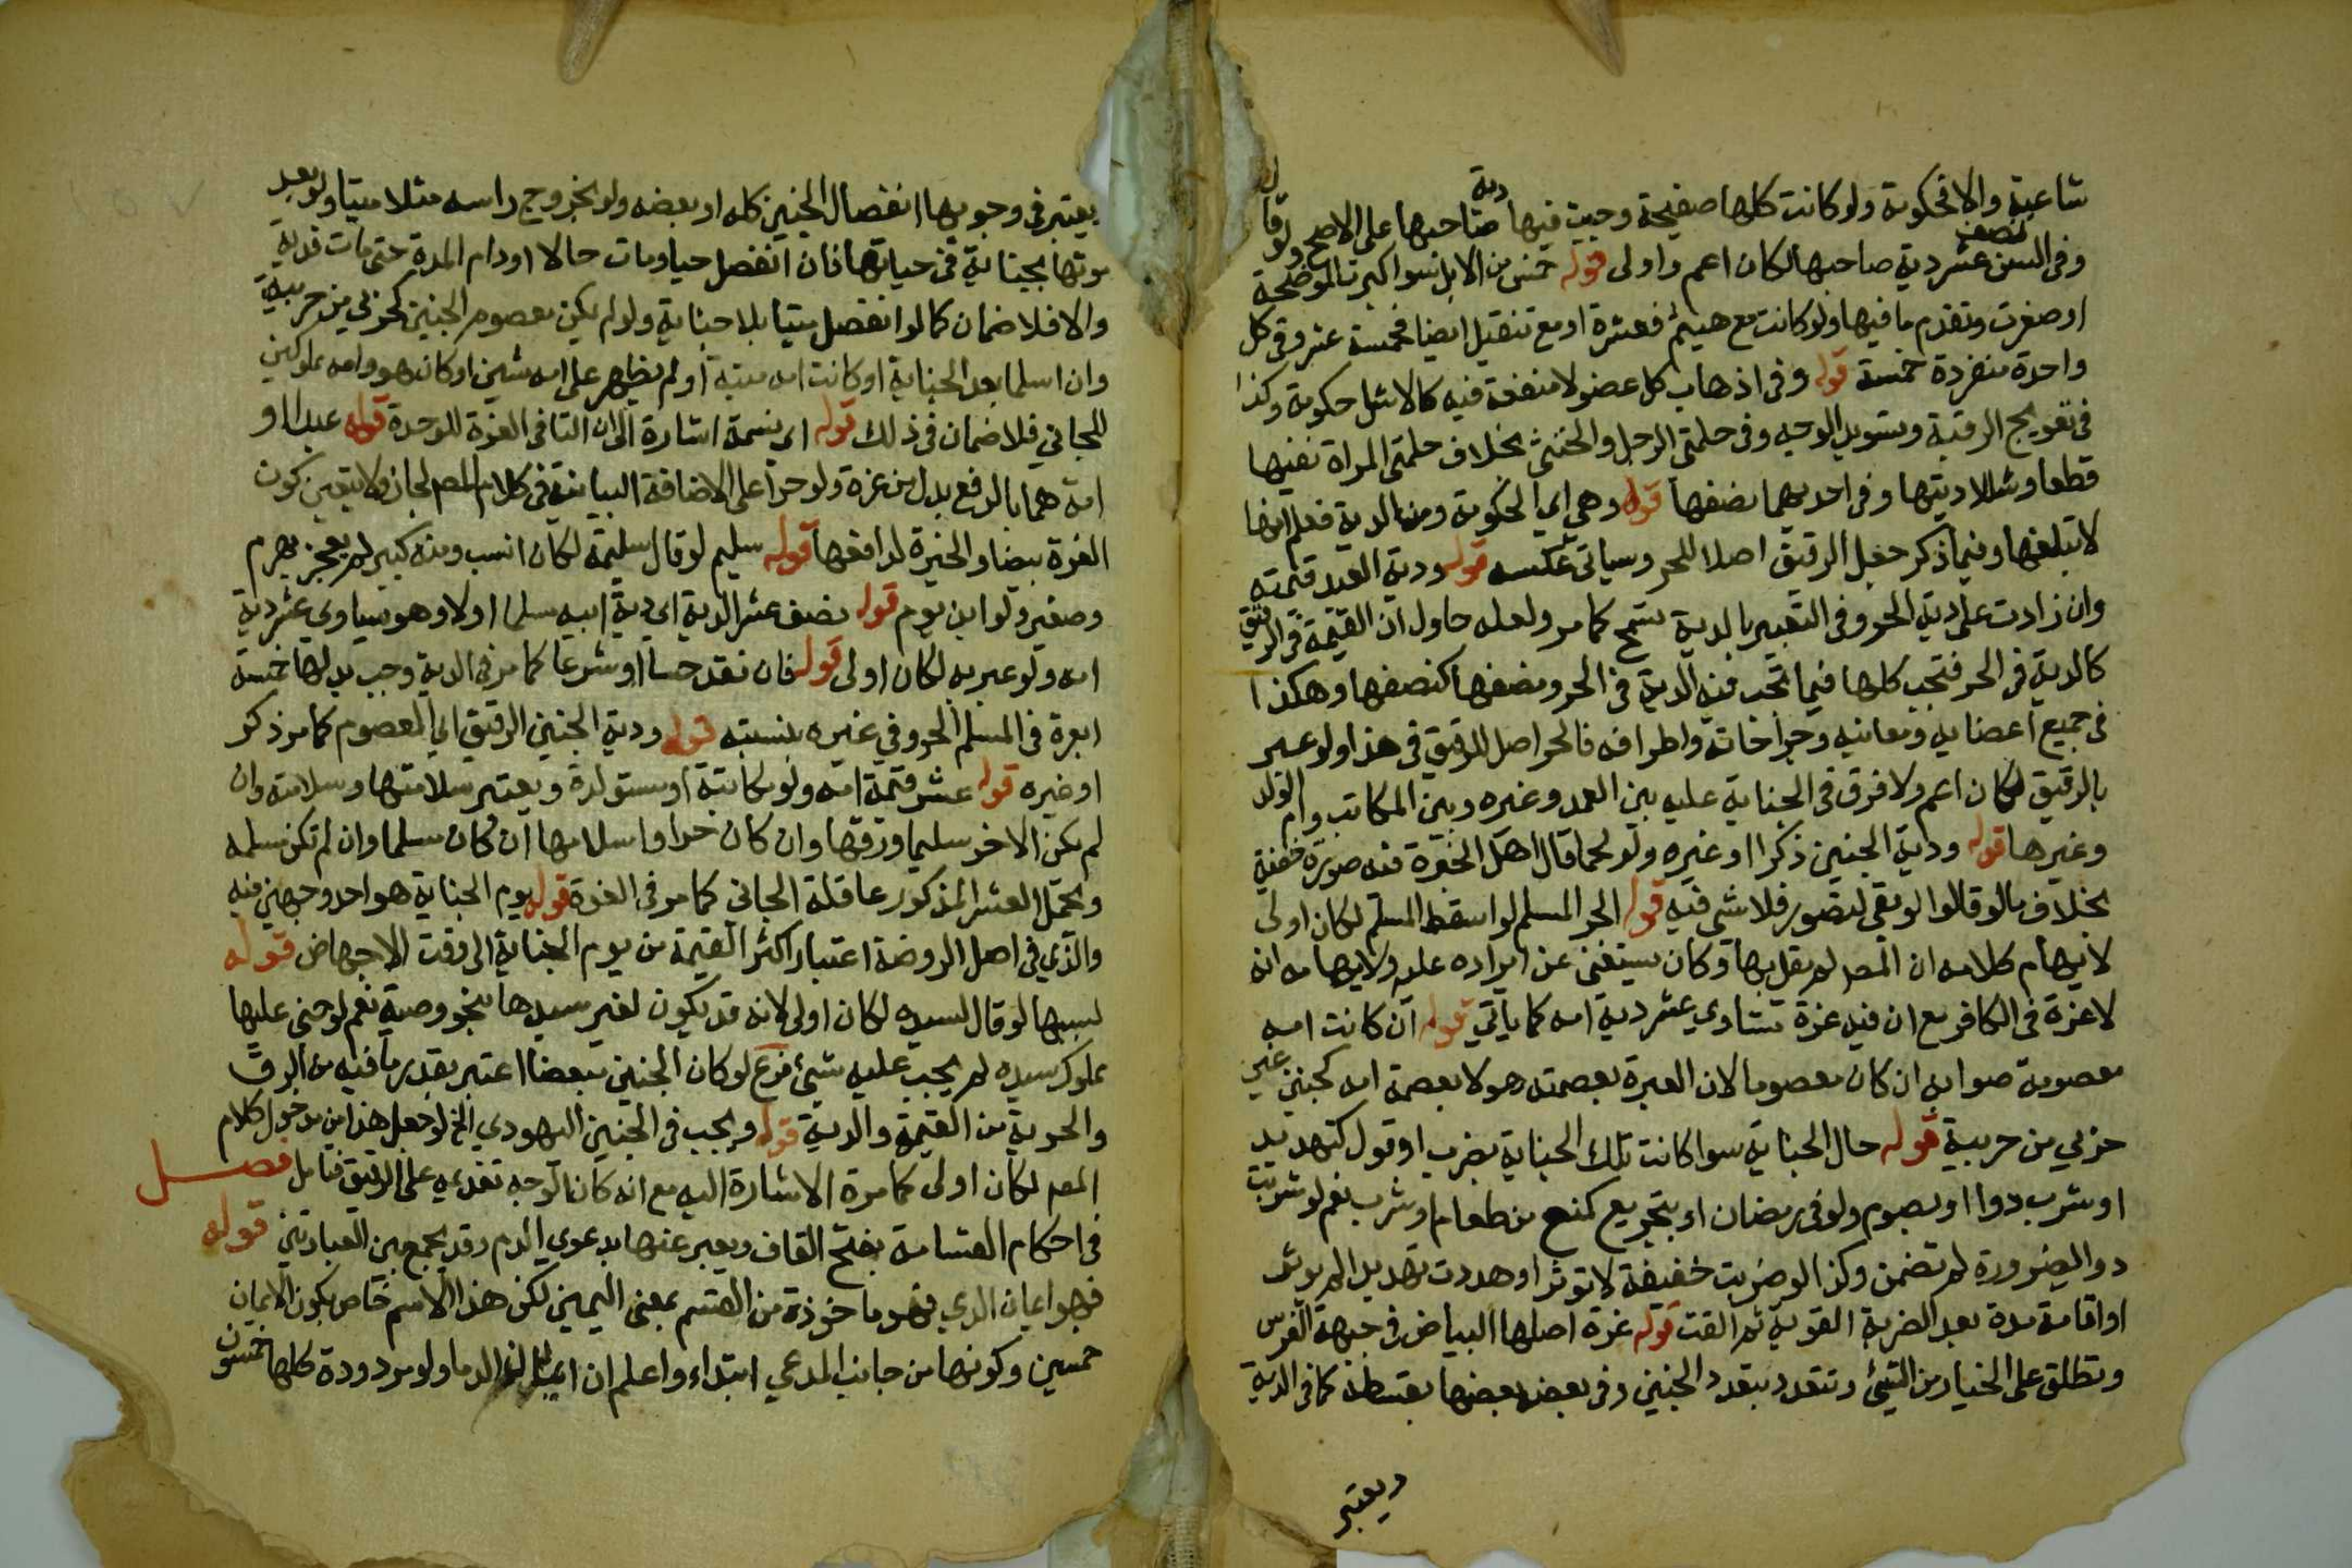 شاغية والا فحكومة ولو كانت كلها صفيحة وجبت فيها دية صاحبها على الاصح ولو قال
وفى السن نصف عشر دية صاحبها لكان اعم واولى قوله خمس من الابل سوا كبرت الموضحة
او صغرت وتقدم ما فيها ولو كانت مع هشم فعشرة او مع تنقيل ايضا فخمسة عشر وفى كل
واحدة منفردة خمسة قوله وفى اذهاب كل عضو لا منفعة فيه كالاشل حكومة وكذا
فى تعويج الرقبة وتسويد الوجه وفى حلمتى الرجل والخنثى بخلاف حلمتى المراة ففيها
قطعا وشللا ديتها وفى احديهما نصفها قوله وهى اي الحكومة ومن الدية فعلم انها
لا تبلغها وفيما ذكر جعل الرقيق اصلا للحر وسياتى عكسه قوله ودية العبد قيمته
وان زادت على دية الحر وفى التعبير بالدية تسمح كما مر ولعله حاول ان القيمة فى الرقيق
كالدية فى الحر فتجب كلها فيما تجب فيه الدية فى الحر ونصفها كنصفها وهكذا
فى جميع اعضايه ومعانيه وجراحاته واطرافه فالحر اصل للرقيق فى هذا ولو عبر
بالرقيق لكان اعم ولا فرق فى الجناية عليه بين العمد وغيره وبين المكاتب وام الولد
وغيرها قوله ودية الجنين ذكرا او غيره ولو لحما قال اهل الخبرة فيه صورة خفية
بخلاف ما لو قالوا لو بقى لتصور فلا شى فيه قوله الحر المسلم لو اسقط المسلم لكان اولى
لايهام كلامه ان المص لم يقل بها وكان يستغنى عن ايراده عليه ولايهامه انه
لا غرة فى الكافر مع ان فيه غرة تساوي عشر دية امه كما ياتي قوله ان كانت امه
معصومة صوابه ان كان معصوما لان العبرة بعصمته هو لا بعصمة امه كجنين غير
حزبي من حربية قوله حال الجناية سوا كانت تلك الجناية بضرب او قول كتهديد
او شرب دوا او بصوم ولو فى رمضان او بتجويع كمنع من طعام او شرب نعم لو شربت
دوا لضرورة لم تضمن وكذا لو ضربت خفيفة لا توثر او هددت تهديدا لم يوثر
او اقامت مدة بعد الضربة القوية ثم القت قوله غرة اصلها البياض فى جبهة الفرس
وتطلق على الخيار من الشيئ وتتعدد بتعدد الجنين وفى بعضه بعضها بقسطه كما فى الدية
ويعتبر
يعتبر فى وجوبها انفصال الجنين كله او بعضه ولو بخروج راسه مثلا ميتا ولو بعد
موتها بجناية فى حياتها فان انفصل حيا ومات حالا او دام المه حتى مات فدية
والا فلا ضمان كما لو انفصل ميتا بلا جناية ولو لم يكن معصوم الجنين كحربي من حربية
وان اسلما بعد الجناية او كانت امه ميتة او لم يظهر على امه شين او كان هو وامه مملوكين
للجاني فلا ضمان فى ذلك قوله اى نسمة اشارة الى ان التا فى الغرة للوحدة قوله عبد او
امة هما بالرفع بدل من غرة ولو جر على الاضافة البيانية فى كلام المص لجاز ولا يتعين كون
الغرة بيضا والخيرة لدافعها قوله سليم لو قال سليمة لكان انسب ومنه كبير لم يعجز بهرم
وصغير ولو ابن يوم قوله نصف عشر الدية اى دية ابيه مسلما اولا وهو يساوي عشر دية
امه ولو عبر به لكان اولى قوله فان فقد حسا او شرعا كما مر فى الدية وجب بدلها خمسة
ابعرة فى المسلم الحر وفى غيره بنسبته قوله ودية الجنين الرقيق اي المعصوم كما مر ذكر
او غيره قوله عشر قيمة امه ولو مكاتبة او مستولدة ويعتبر سلامتها وسلامته وان
لم يكن الاخر سليما ورقها وان كان حرا واسلامها ان كان مسلما وان لم تكن مسلمه
ويحمل العشر المذكور عاقلة الجانى كما مر فى الغرة قوله يوم الجناية هو احد وجهين فيه
والذي فى اصل الروضة اعتبار اكثر القيمة من يوم الجناية الى وقت الاجهاض قوله
لسيدها لو قال لسيده لكان اولى لانه قد يكون لغير سيدها بنحو وصية نعم لو جنى عليها
مملوك سيده لم يجب عليه شيئ فرع لو كان الجنين مبعضا اعتبر بقدر ما فيه من الرق
والحرية من القيمة والدية قوله ويجب فى الجنين اليهودي الخ لو جعل هذا من مدخول كلام
المص لكان اولى كما مرة الاشارة اليه مع انه كان الوجه تقديمه على الرقيق فتامل فصل
فى احكام القسامة بفتح القاف ويعبر عنها بدعوي الدم وقد يجمع بين العبارتين قوله
فهو ايمان الدم فهو ماخوذة من القسم بمعنى اليمين لكن هذا الاسم خاص بكون الايمان
خمسين وكونها من جانب المدعي ابتداء واعلم ان ايمان الدما ولو مردودة كلها خمسون